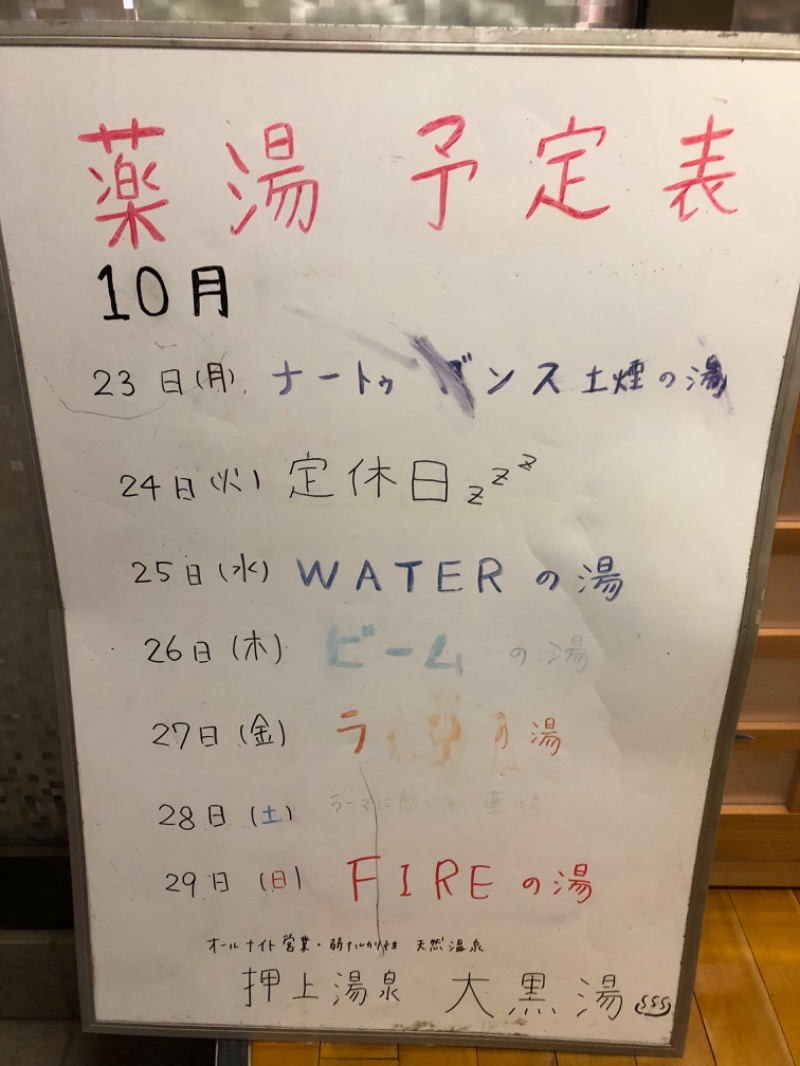 薬湯予定表
10月
23日(月) ナートゥ ンス 土煙の湯
24日(火) 定休日zzz
25日(水) WATERの湯
26日(木) ビームの湯
27日(金) ラ の湯
28日(土)
29日(日) FIREの湯
オールナイト営業・ 天然温泉
押上温泉 大黒湯